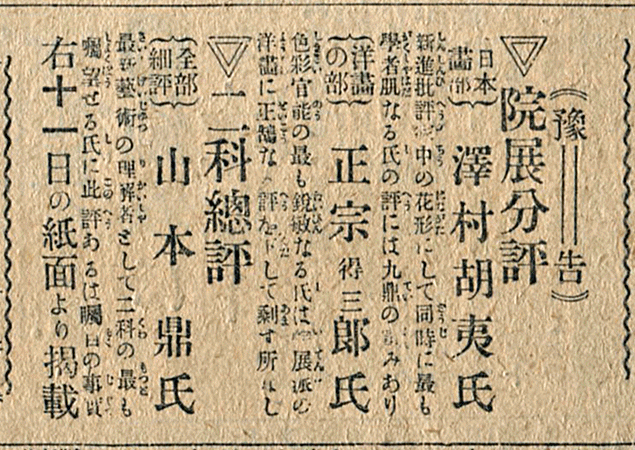 《豫――告》
▽院展分評
日本畵部 澤村胡夷氏
新進批評 中の花形にして同時に最も
學者肌なる氏の評には九鼎の みあり
洋畵の部 正宗得三郎氏
色彩官能の最も鋭敏なる氏は 展派の
洋畵に正鵠な 評を下して剩す所なし
▽二科總評
全部細評 山本鼎氏
最 藝術の理解者として二科の最も
囑望せる氏に此評あるは囑目の事
右十一日の紙面より揭載